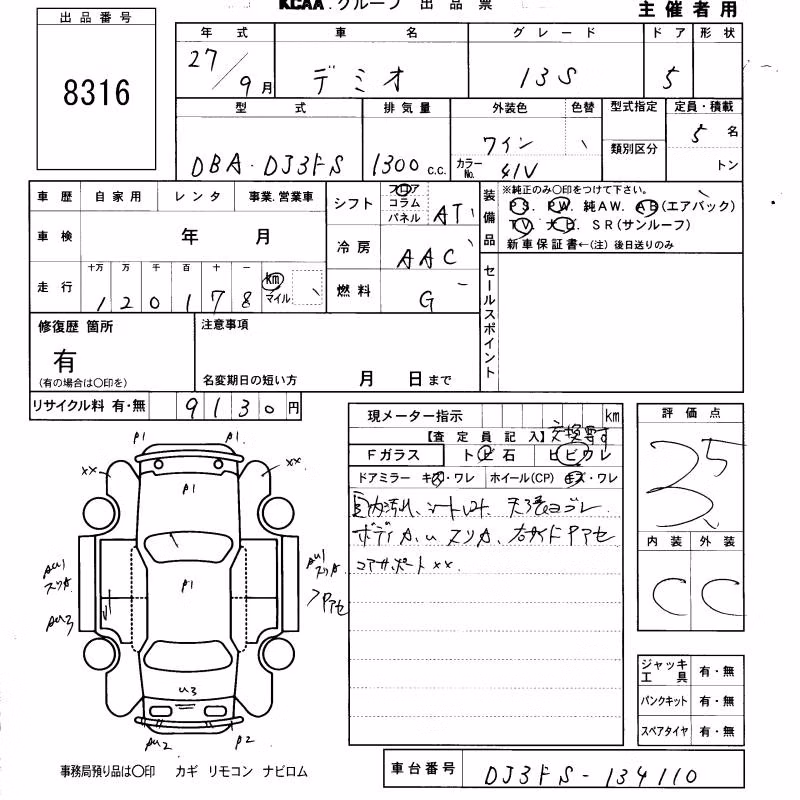 KCAA.グループ 出品票
主催者用
出品番号
8316
年式 車名 グレード ドア 形状
27/9月 デミオ 13S 5
型式 排気量 外装色 色替 型式指定 定員・積載
DBA・DJ3FS 1300 c.c. ワイン 類別区分 5名
カラーNo. 41V トン
車歴 自家用 レンタ 事業.営業車
車検 年 月
走行 十万 万 千 百 十 一
120178 km マイル
シフト フロア コラム パネル AT
冷房 AAC
燃料 G
装備品
※純正のみ〇印をつけて下さい。
PS. PW. 純AW. AB(エアバック)
TV. ナビ. SR(サンルーフ)
新車保証書←(注)後日送りのみ
セールスポイント
修復歴 箇所
有
(有の場合は〇印を)
注意事項
名変期日の短い方 月 日まで
リサイクル料 有・無 9130円
現メーター指示 km
【査定員記入】 交換要す
Fガラス トビ石 ヒビワレ
ドアミラー キズ・ワレ ホイール(CP) キズ・ワレ
室内汚れ、シート
ボディA,u スリA、右サイドPアセ
コアサポートxx.
評価点
3.5
内装 外装
C C
P1 P1
xx xx
P1
P1
AU1 スリA
AU3
AU1 スリA
Pアセ
u3
AU2 P2
ジャッキ工具 有・無
パンクキット 有・無
スペアタイヤ 有・無
事務局預り品は〇印 カギ リモコン ナビロム
車台番号 DJ3FS-134110